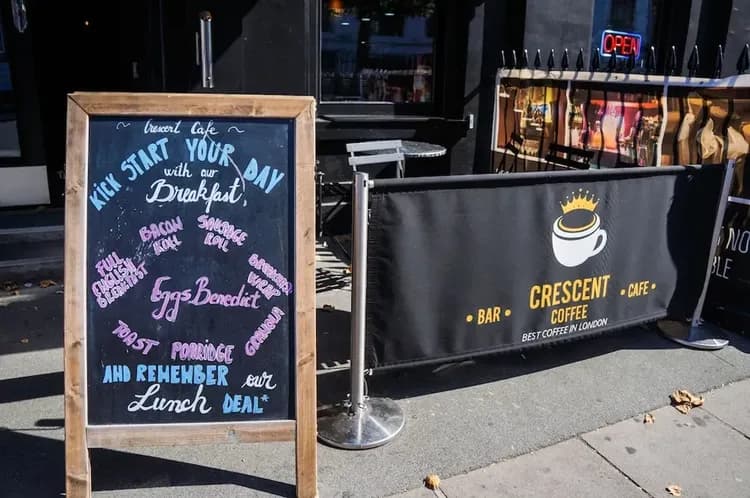 Crescent Cafe
KICK START YOUR DAY
with our
Breakfast,
BACON
ROLL
SAUSAGE
ROLL
FULL
ENGLISH
BREAKFAST
BREAKFAST
WRAP
Eggs Benedict
TOAST
PORRIDGE
GRANOLA
AND REMEMBER our
Lunch DEAL*
OPEN
• BAR •
CRESCENT
COFFEE
• CAFE •
BEST COFFEE IN LONDON
NO
BLE